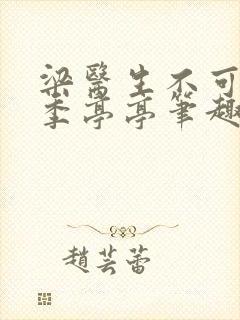 梁醫生不可
季亭亭筆趣
趙芸蕾